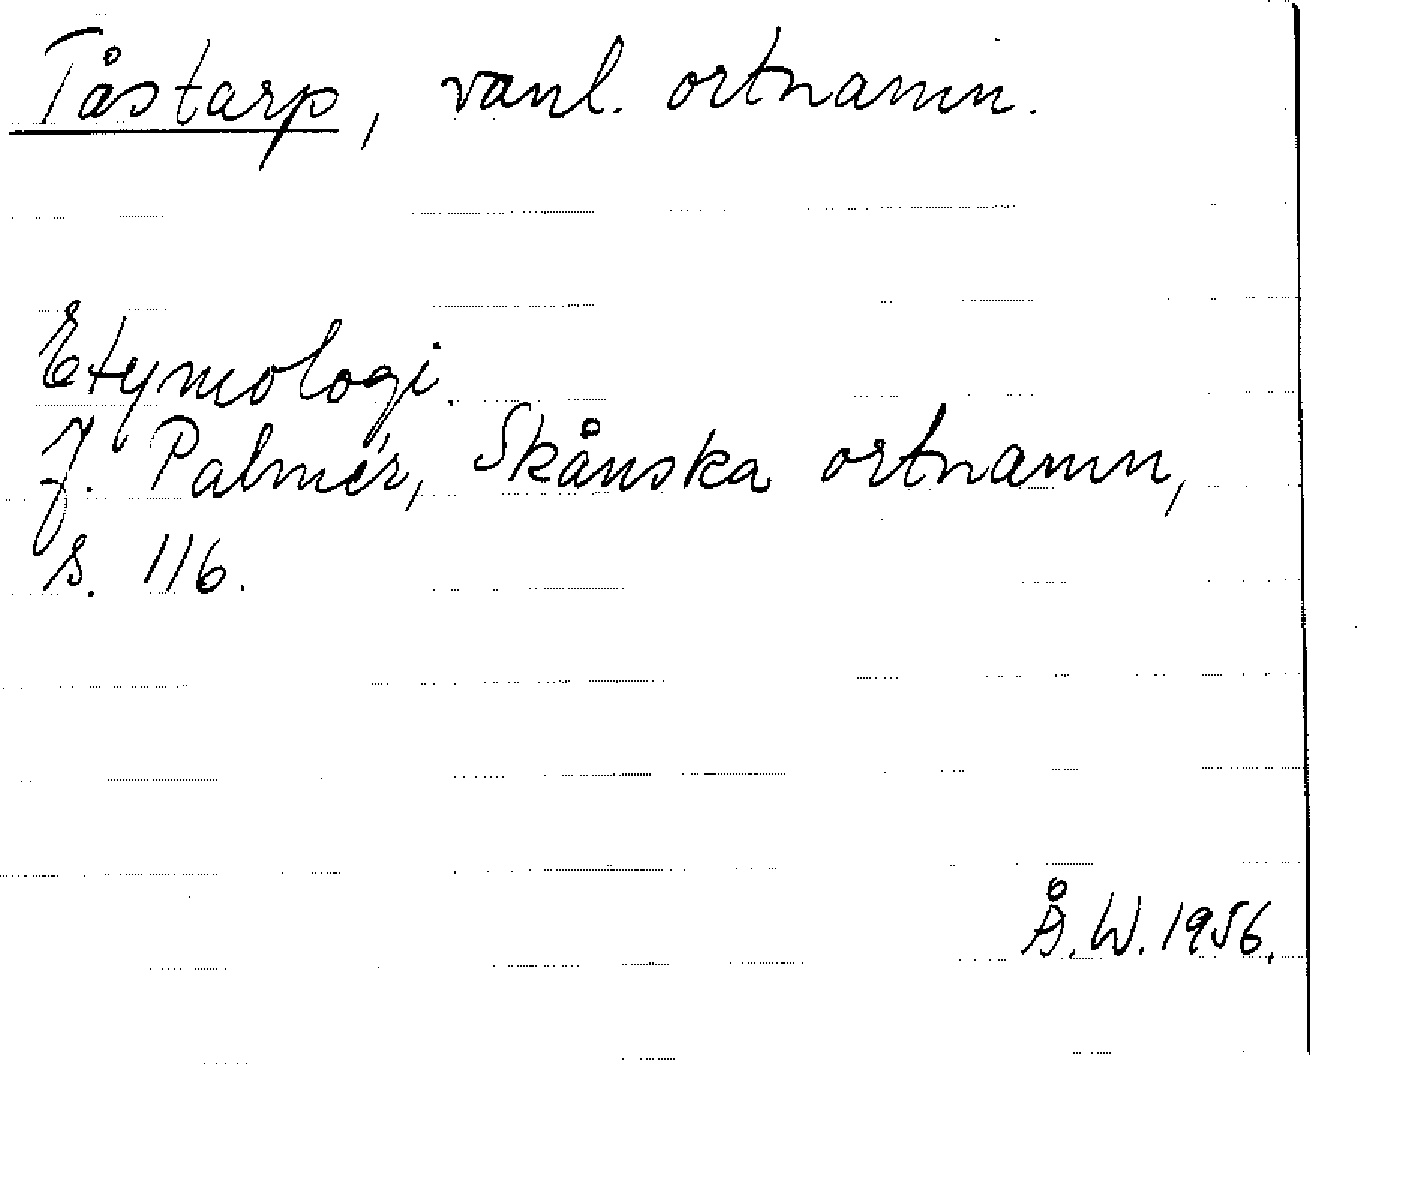 Tåstarp, vanl. ortnamn.
Etymologi.
J. Palmér, Skånska ortnamn,
s. 116.
Å.W. 1956.